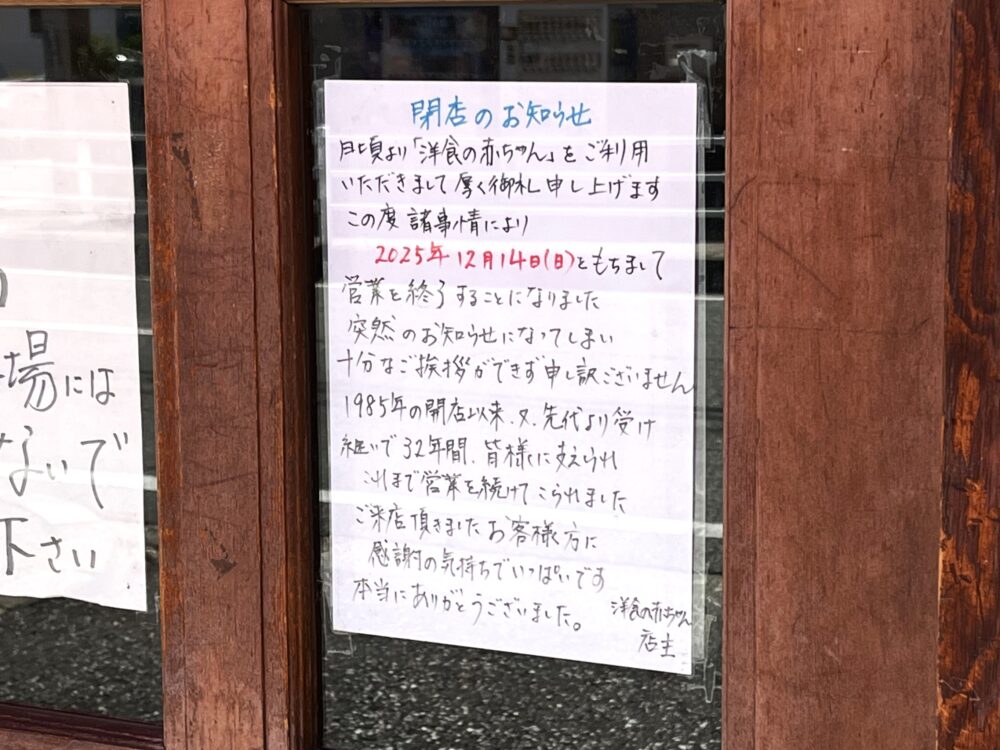 場には
ないで
下さい
閉店のお知らせ
日頃より「洋食の赤ちゃん」をご利用
いただきまして厚く御礼申し上げます
この度諸事情により
2025年12月14日(日)ともちまして
営業を終了することになりました
突然のお知らせになってしまい
十分なご挨拶ができず申し訳ございません
1985年の開店以来、又、先代より受け
継いで32年間、皆様に支えられ
これまで営業を続けてこられました
ご来店頂きましたお客様方に
感謝の気持ちでいっぱいです
本当にありがとうございました。
洋食の赤ちゃん
店主